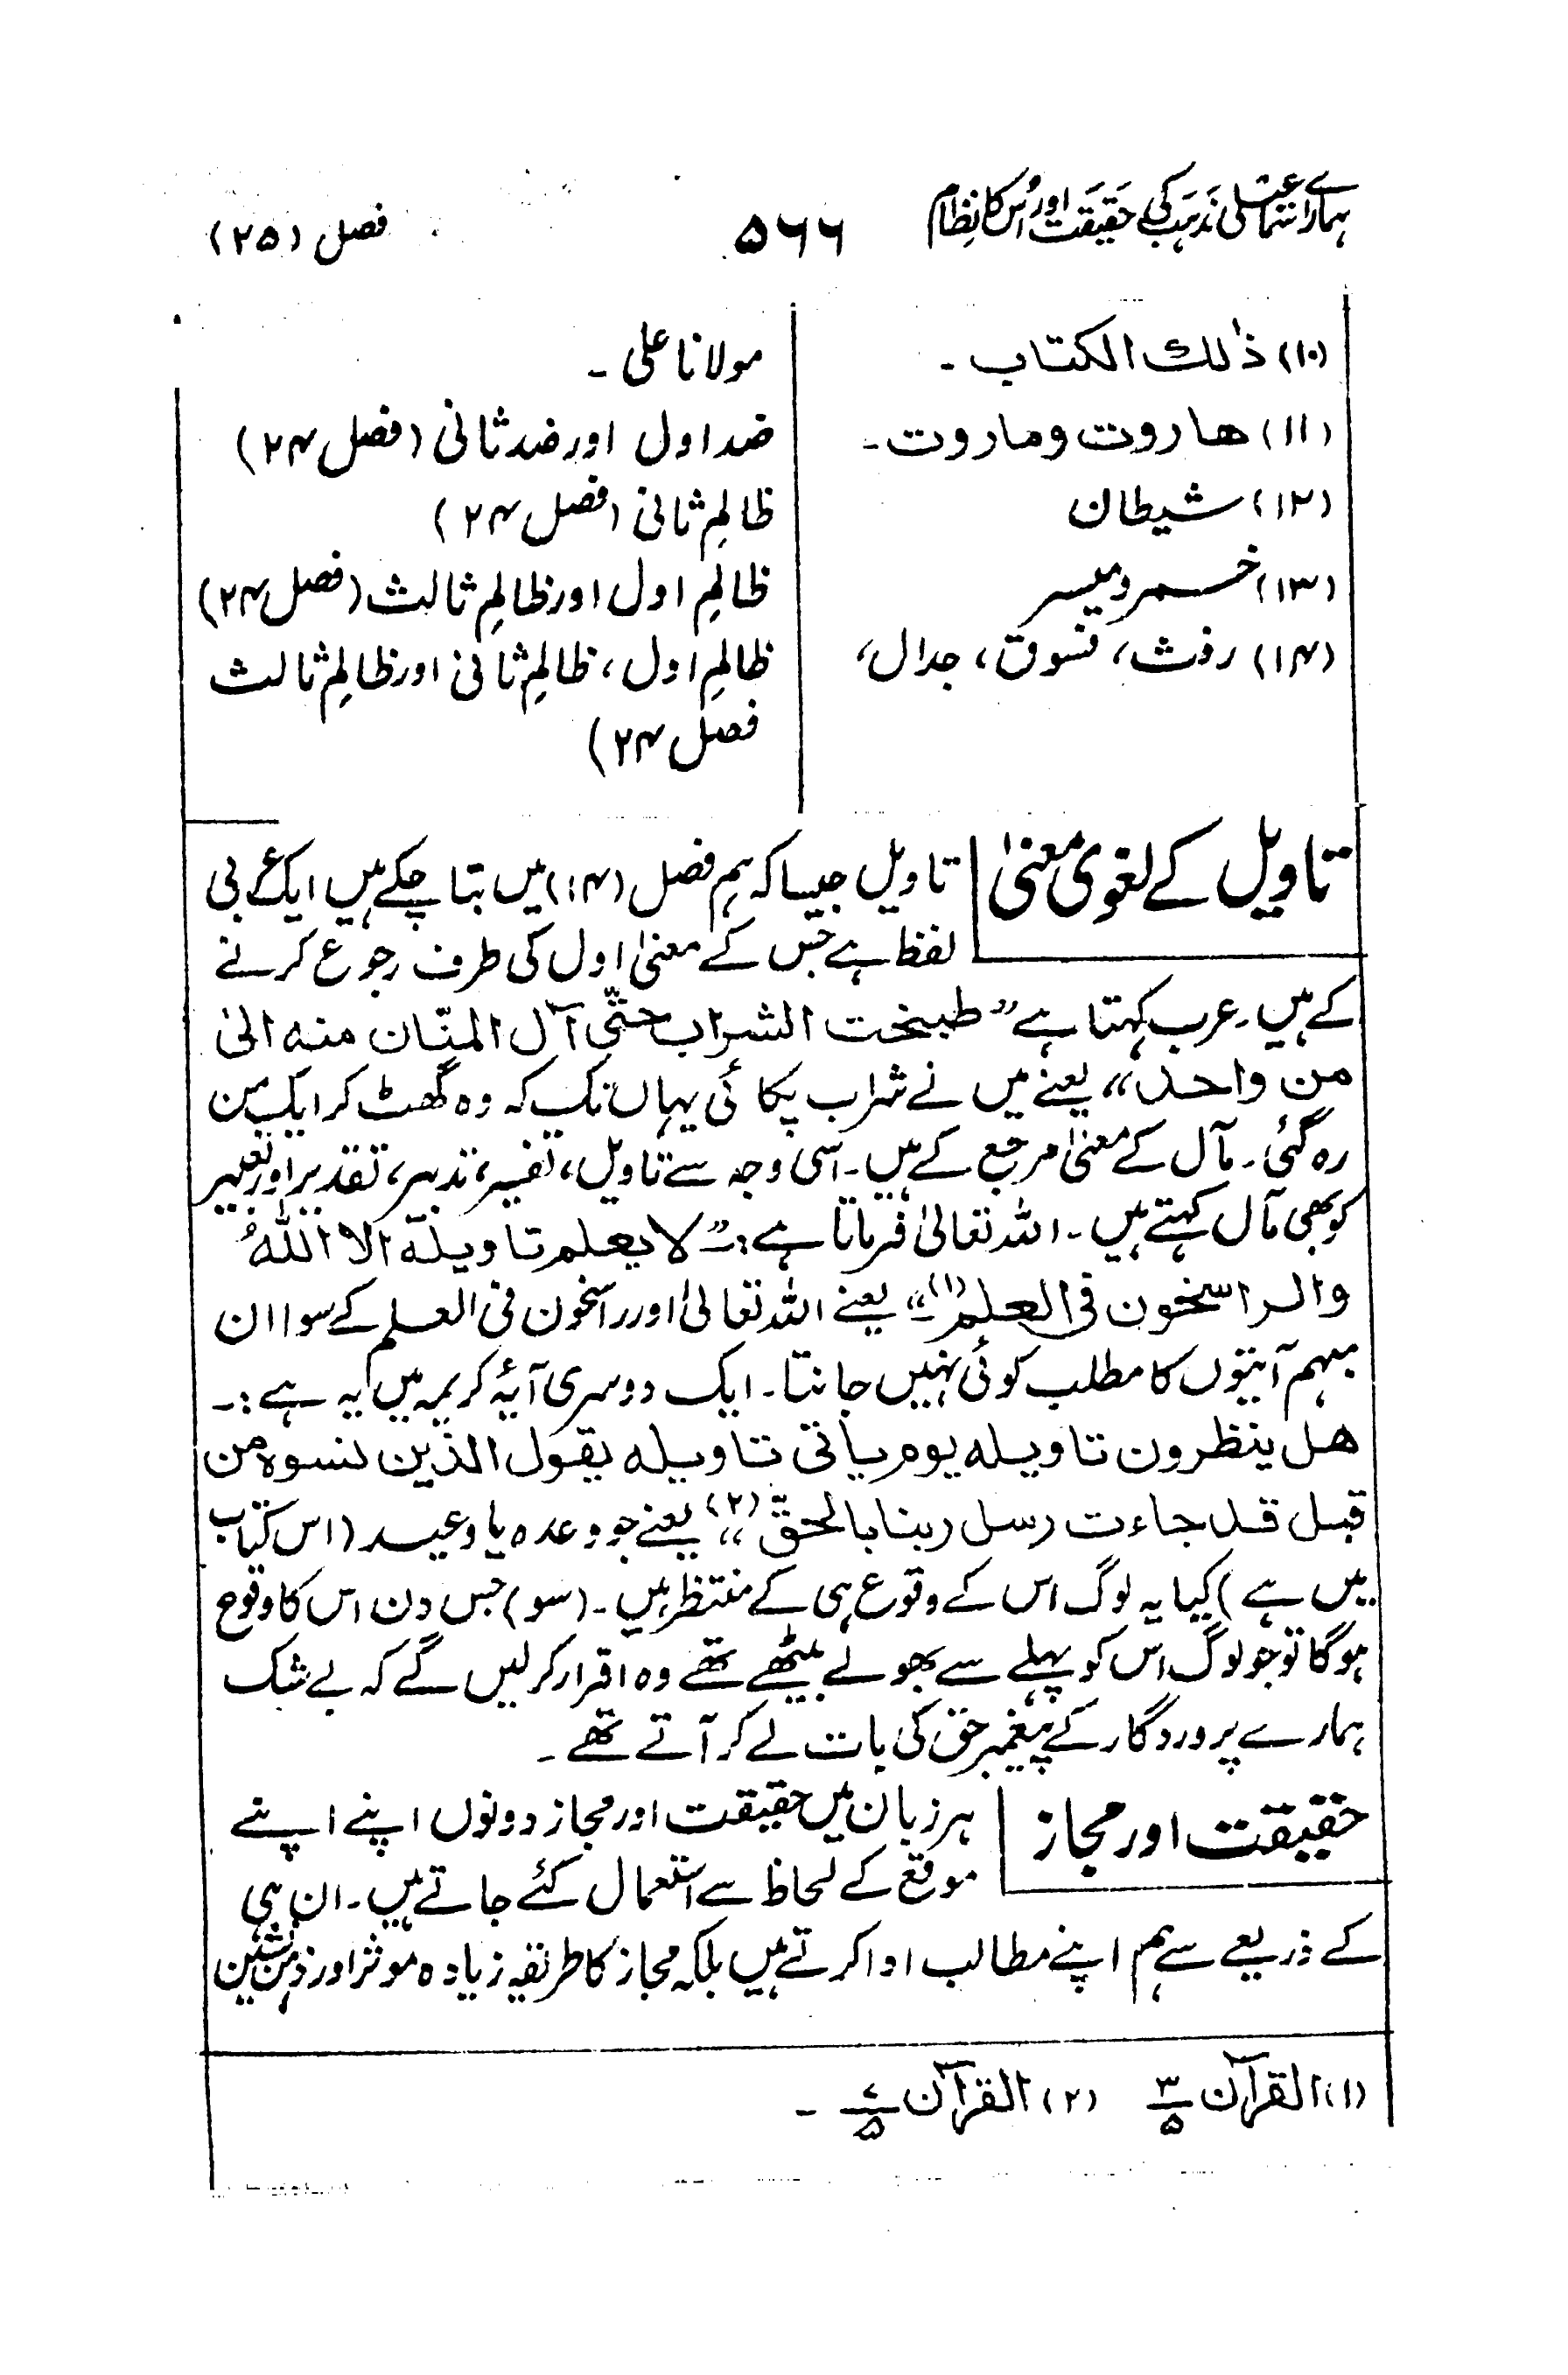 ہمارے اسماعیلی مذہب کی حقیقت اور اُس کا نظام ۵۶۶ فصل (۲۵)
(۱۰) ذٰلك الكتاب ۔ مولانا علی ۔
(۱۱) هاروت وماروت ۔ ضد اول اور ضد ثانی (فصل ۲۴)
(۱۲) شیطان ظالمِ ثانی (فصل ۲۴)
(۱۳) خمر و میسر ظالمِ اول اور ظالمِ ثالث (فصل ۲۴)
(۱۴) رفث، فسوق، جدال، ظالمِ اول، ظالمِ ثانی اور ظالمِ ثالث
فصل ۲۴)
تاویل کے لغوی معنیٰ تاویل جیسا کہ ہم فصل (۱۴) میں بتا چکے ہیں ایک عربی
لفظ ہے جس کے معنیٰ اول کی طرف رجوع کرنے
کے ہیں۔ عرب کہتا ہے ”طبخت الشراب حتّی آل المنّان منه الیٰ
من واحد“ یعنے میں نے شراب پکائی یہاں تک کہ وہ گھٹ کر ایک من
رہ گئی۔ مآل کے معنیٰ مرجع کے ہیں۔ اسی وجہ سے تاویل، تفسیر، تدبیر، تقدیر اور تعبیر
کو بھی مآل کہتے ہیں۔ اللہ تعالیٰ فرماتا ہے :۔ ”لا یعلم تاویلہ الا اللّٰہُ
والراسخون فی العلم (۱)“ یعنے اللہ تعالیٰ اور راسخون فی العلم کے سوا ان
مبہم آیتوں کا مطلب کوئی نہیں جانتا۔ ایک دوسری آیۂ کریمہ میں یہ ہے :۔
هل ینظرون تاویله یوم یاتی تاویله یقول الذین نسوہ من
قبل قد جاءت رسل ربنا بالحقّ (۲)“ یعنے جو وعدہ یا وعید (اس کتاب
میں ہے) کیا یہ لوگ اس کے وقوع ہی کے منتظر ہیں۔ (سو) جس دن اس کا وقوع
ہوگا تو جو لوگ اس کو پہلے سے بھولے بیٹھے تھے وہ اقرار کرلیں گے کہ بے شک
ہمارے پروردگار کے پیغمبر حق کی بات لے کر آتے تھے ۔
حقیقت اور مجاز ہر زبان میں حقیقت اور مجاز دونوں اپنے اپنے
موقع کے لحاظ سے استعمال کئے جاتے ہیں۔ ان ہی
کے ذریعے سے ہم اپنے مطالب ادا کرتے ہیں بلکہ مجاز کا طریقہ زیادہ موثر اور ذہن نشین
(۱) القرآن ۳/۵ (۲) القرآن ۷/۵ ۔